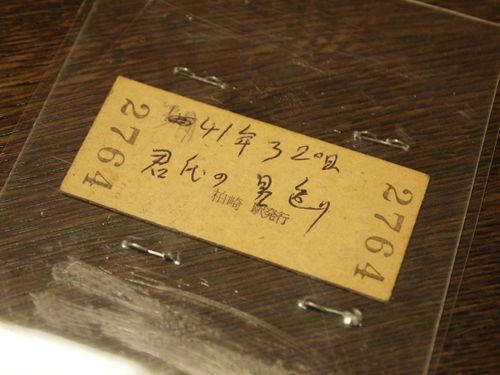 2764
41年3 20日
君代の見送り
柏崎 駅発行
2764